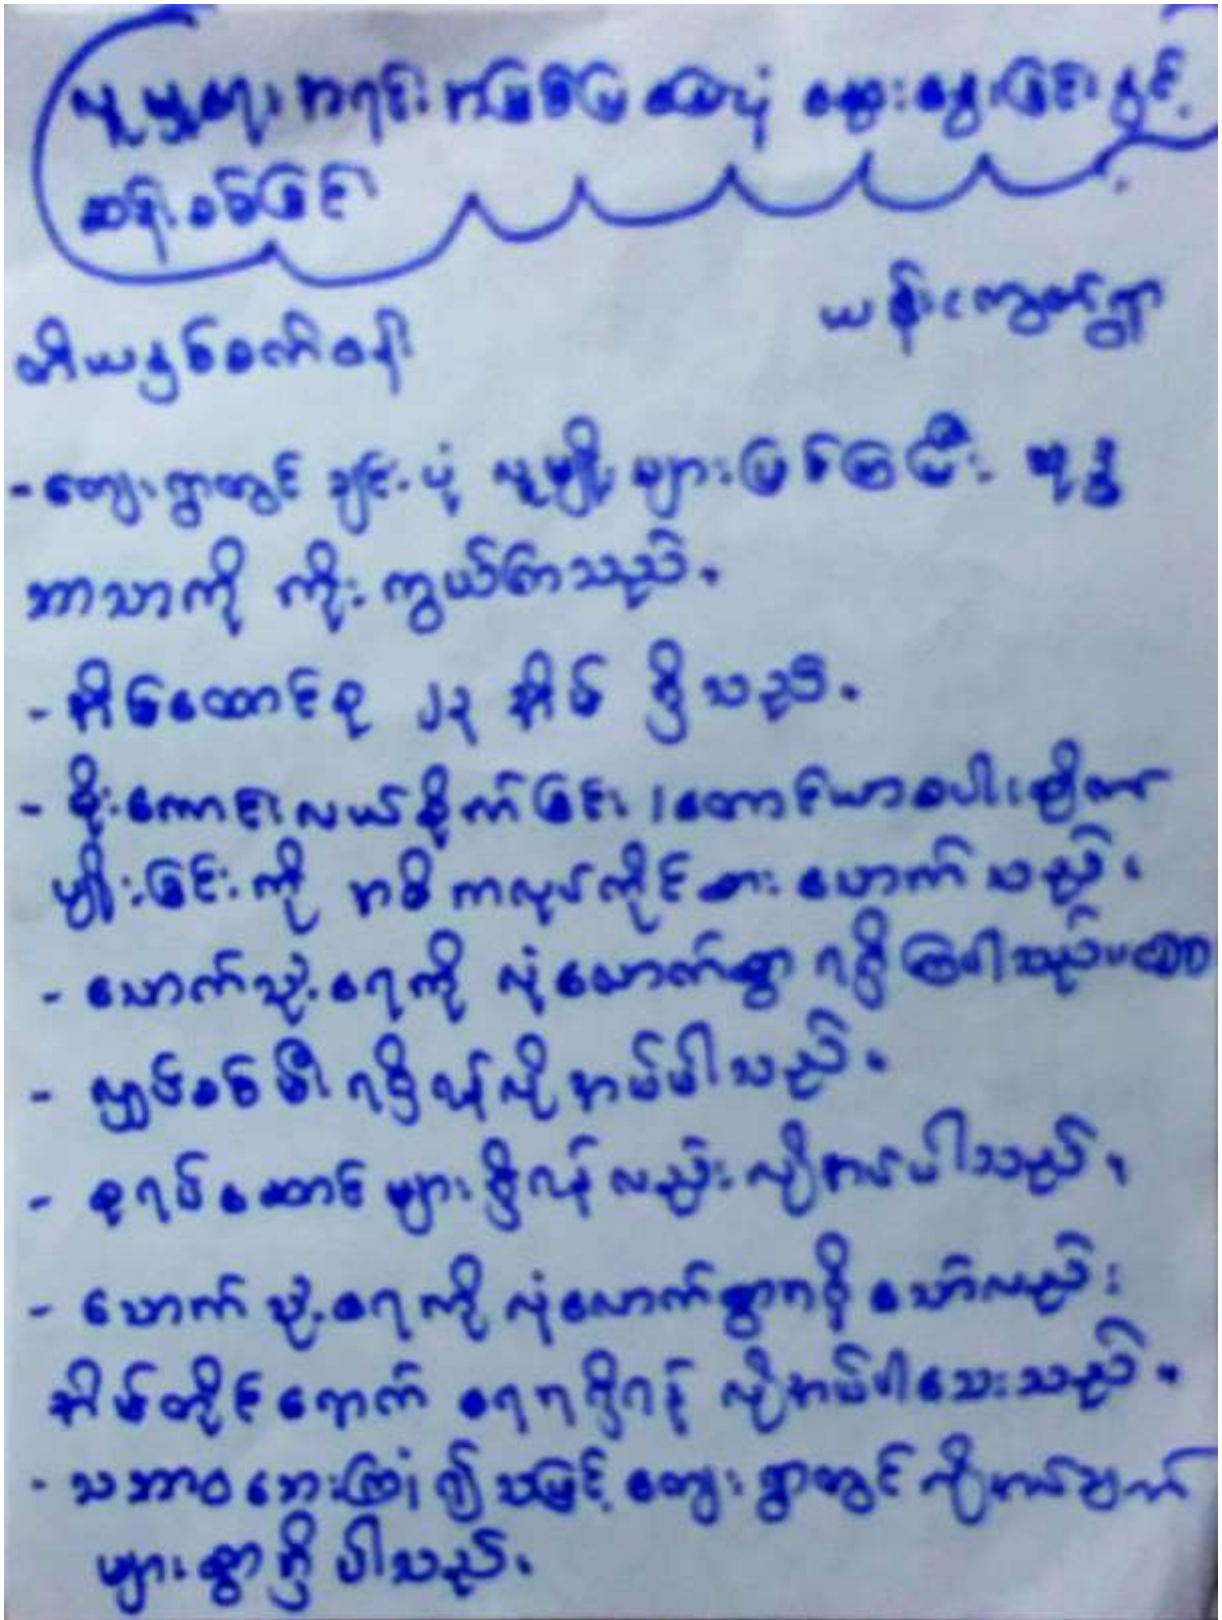 လူမှုရေး အရင်းအမြစ်ပြ မြေပုံ ဆွေးနွေးခြင်းနှင့်
ဆန်းစစ်ခြင်း
ယန်းကွတ်ရွာ
တီးယန္ဒစ်စတိစန်း
- ကျေးရွာတွင် ချင်းပုံ လူမျိုးများဖြစ်ကြပြီး ဗုဒ္ဓ
ဘာသာကို ကိုးကွယ်ကြသည်။
- အိမ်ထောင်စု ၂၃ အိမ် ရှိသည်။
- မိုးကောင်းလယ်စိုက်ခြင်း၊ တောင်ယာစပါးစိုက်
ပျိုးခြင်းကို အဓိကလုပ်ကိုင်စားသောက်သည်။
- သောက်သုံးရေကို လုံလောက်စွာ ရရှိကြပါသည်
- လျှပ်စစ်မီး ရရှိရန်လိုအပ်ပါသည်။
- စုရပ်ဆောင်များရှိရန်လည်း လိုအပ်ပါသည်။
- သောက်သုံးရေကို လုံလောက်စွာရရှိသော်လည်း
အိမ်တိုင်ရောက် ရေရရှိရန် လိုအပ်ပါသေးသည်။
- သဘာဝဘေးကြုံ၍ သဖြင့် ကျေးရွာတွင် လိုအပ်ချက်
များစွာရှိပါသည်။